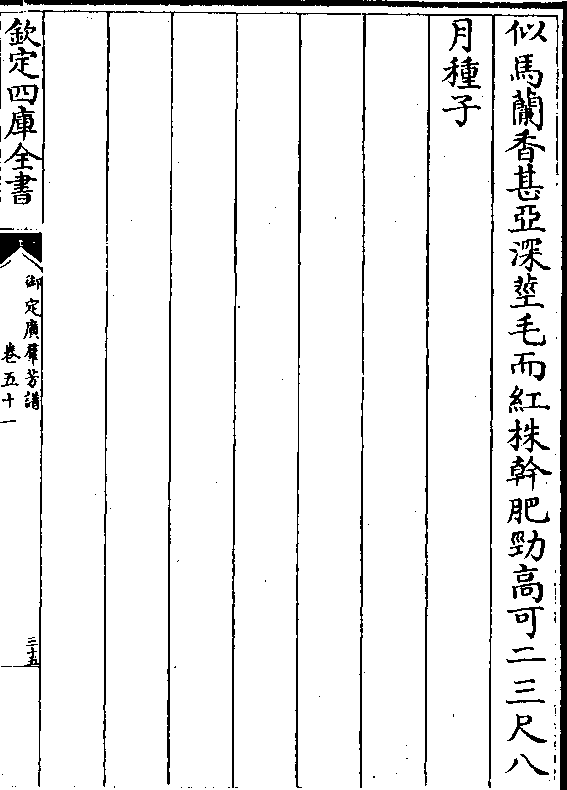 似馬蘭香甚亞深莖毛而紅株幹肥勁高可二三尺八
月種子
欽定四庫全書
御定廣羣芳譜
卷五十一
三十五